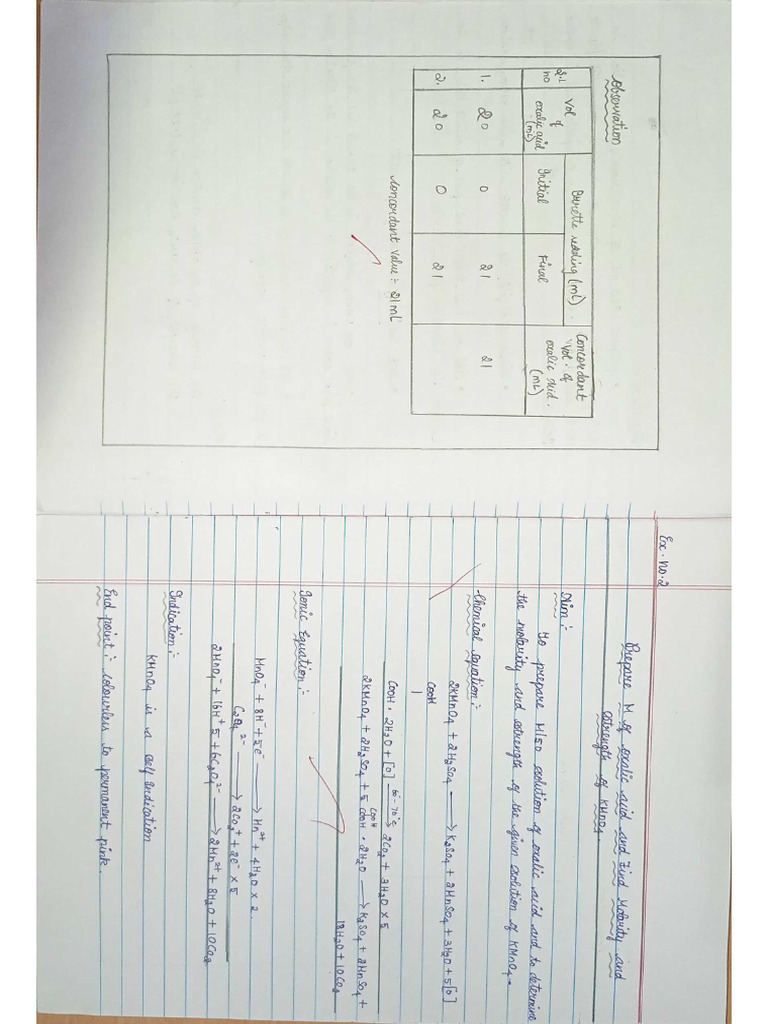 Observation
S.L no
Vol of oxalic acid (mL)
Burette reading (mL)
Concordant Vol. of oxalic acid. (mL)
Initial
Final
1. 20 0 21 21
2. 20 0 21
Concordant Value = 21mL
Ex. No. 2
Prepare M of oxalic acid and Find Molarity and
strength of KMnO4.
Aim :
To prepare M/50 solution of oxalic acid and to determine
the molarity and strength of the given solution of KMnO4.
Chemical equation :-
2KMnO4 + 2H2SO4 ⟶ K2SO4 + 2MnSO4 + 3H2O + 5[O]
COOH
|
COOH . 2H2O + [O] 60-70°C ⟶ 2CO2 + 3H2O × 5
2KMnO4 + 2H2SO4 + 5 COOH COOH . 2H2O ⟶ K2SO4 + 2MnSO4 +
18H2O + 10CO2
Ionic Equation :-
MnO4⁻ + 8H⁻ + 5e⁻ ⟶ Mn²⁺ + 4H2O × 2.
C2O4²⁻ ⟶ 2CO2 + 2e⁻ × 5
2MnO4⁻ + 16H⁺ 5 + 6C2O4²⁻ ⟶ 2Mn²⁺ + 8H2O + 10CO2
Indication :-
KMnO4 is a self indication
End point : colourless to permanent pink.